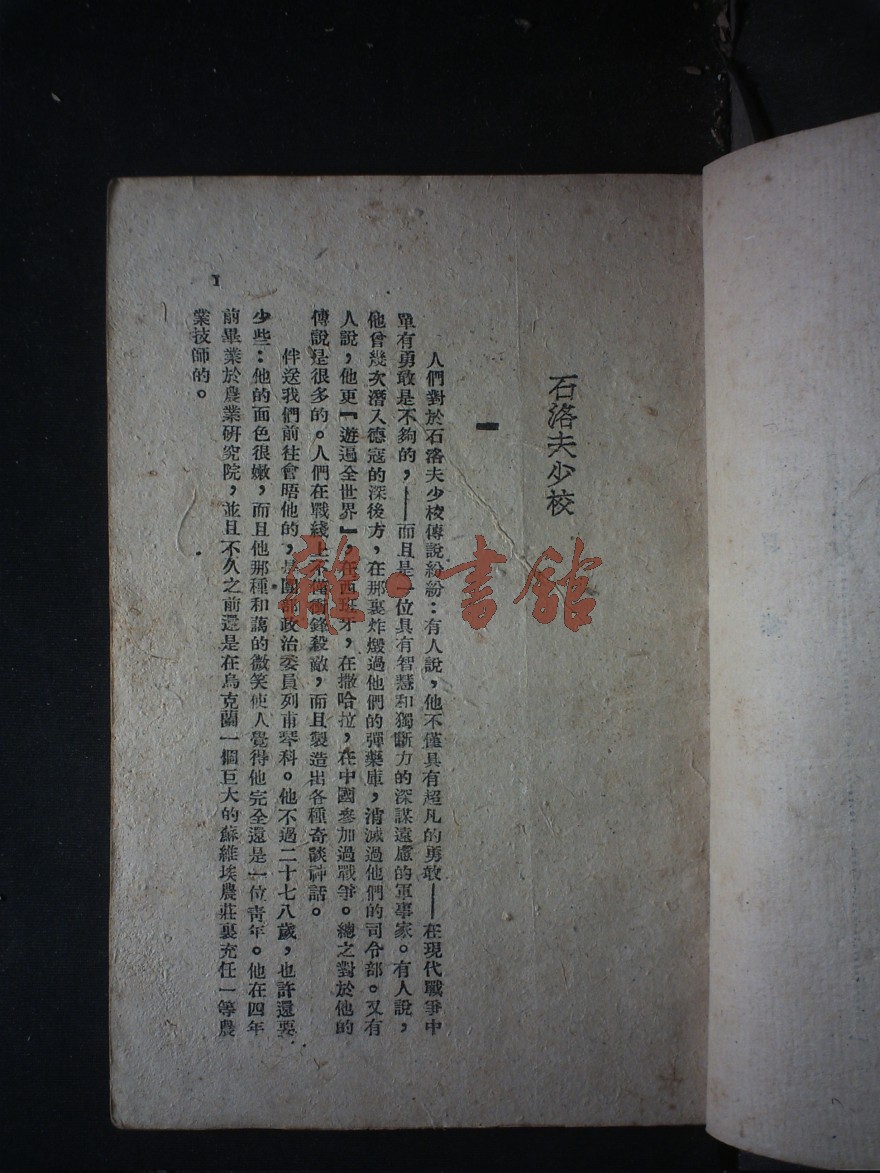 石洛夫少校
一
人們對於石洛夫少校傳說紛紛：有人說，他不僅具有超凡的勇敢——在現代戰爭中
單有勇敢是不夠的，——而且是一位具有智慧和獨斷力的深謀遠慮的軍事家。有人說，
他曾幾次潛入德寇的深後方，在那裏炸燬過他們的彈藥庫，消滅過他們的司令部。又有
人說，他更『遊遍全世界』，在西班牙，在撒哈拉，在中國參加過戰爭。總之對於他的
傳說是很多的。人們在戰綫上不僅衝鋒殺敵，而且製造出各種奇談神話。
伴送我們前往會晤他的，是團部政治委員列甫琴科。他不過二十七八歲，也許還要
少些：他的面色很嫩，而且他那種和藹的微笑使人覺得他完全還是一位靑年。他在四年
前畢業於農業研究院，並且不久之前還是在烏克蘭一個巨大的蘇維埃農莊裏充任一等農
業技師的。
1
雜·書館